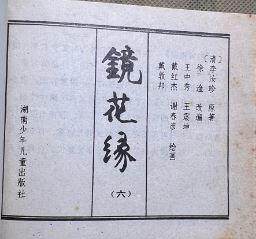 [清]李汝珍 原著
徐淦 改编
王中秀 王震坤
戴红杰 谢春彦 绘画
戴敦邦
鏡花缘
(六)
湖南少年儿童出版社